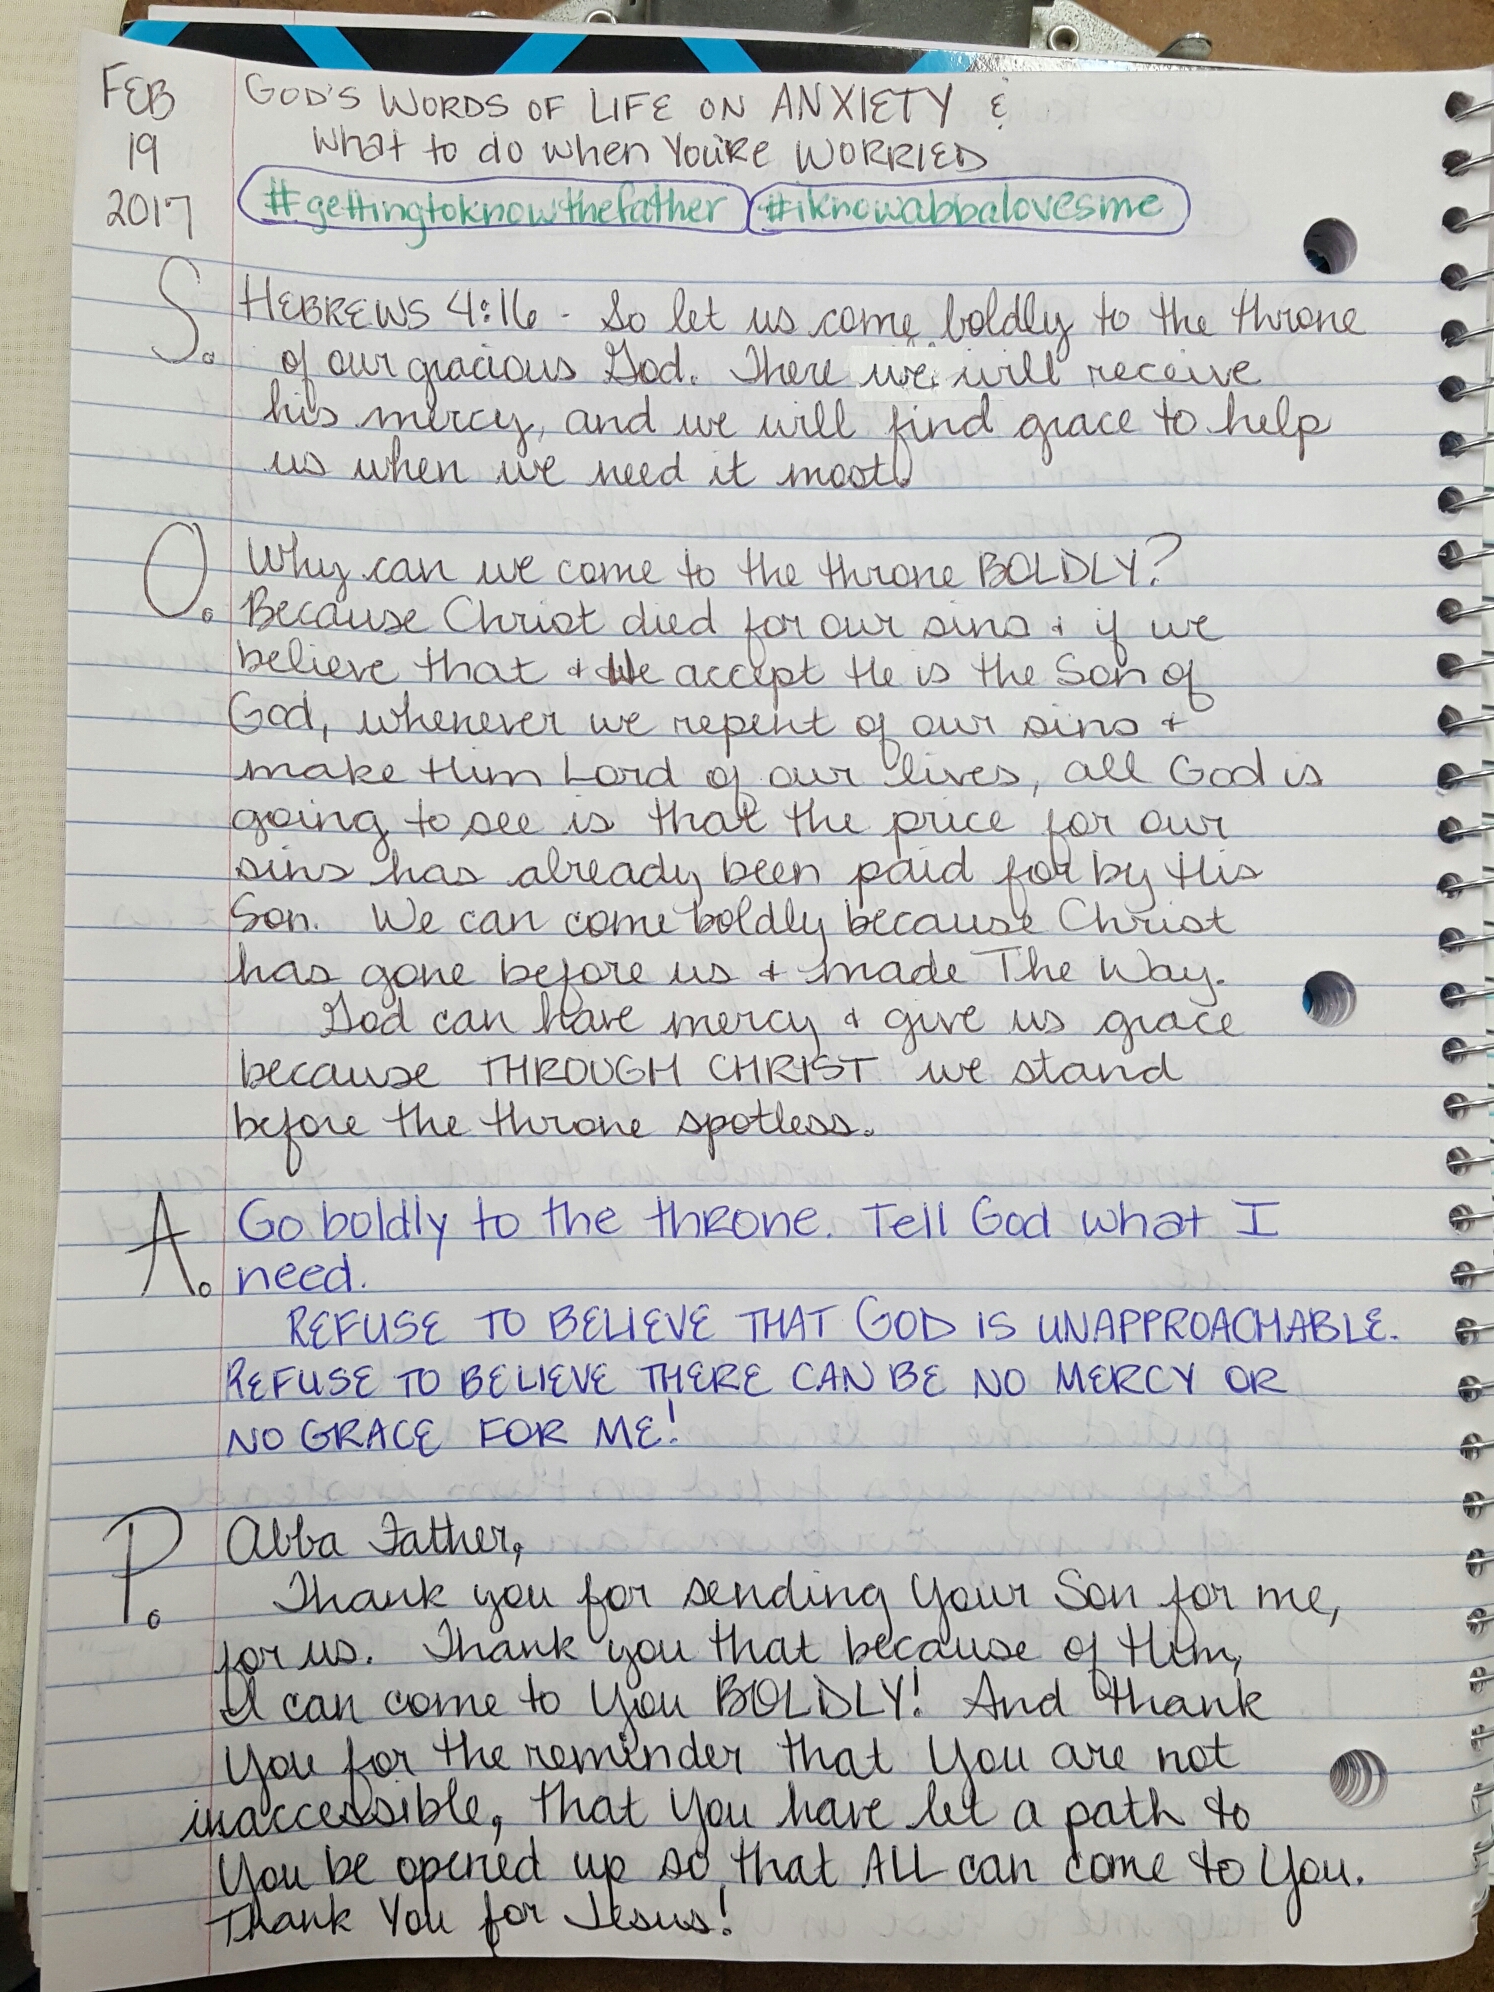 FEB
19
2017
GOD'S WORDS OF LIFE ON ANXIETY &
What to do when You're WORRIED
#gettingtoknowthefather #iknowabbalovesme
S. HEBREWS 4:16 - So let us come boldly to the throne
of our gracious God. There we will receive
his mercy, and we will find grace to help
us when we need it most.
O. Why can we come to the throne BOLDLY?
Because Christ died for our sins & if we
believe that & We accept He is the Son of
God, whenever we repent of our sins &
make Him Lord of our lives, all God is
going to see is that the price for our
sins has already been paid for by His
Son. We can come boldly because Christ
has gone before us & made The Way.
God can have mercy & give us grace
because THROUGH CHRIST we stand
before the throne spotless.
A. Go boldly to the throne. Tell God what I
need.
REFUSE TO BELIEVE THAT GOD IS UNAPPROACHABLE.
REFUSE TO BELIEVE THERE CAN BE NO MERCY OR
NO GRACE FOR ME!
P. Abba Father,
Thank you for sending Your Son for me,
for us. Thank you that because of Him,
I can come to You BOLDLY! And thank
You for the reminder that You are not
inaccessible, that You have let a path to
You be opened up so that ALL can come to You.
Thank You for Jesus!